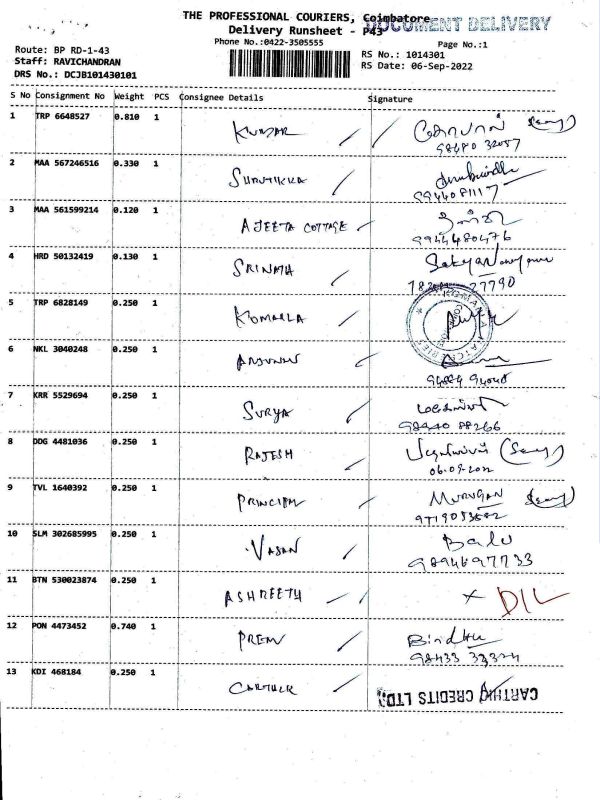 THE PROFESSIONAL COURIERS, Coimbatore
DOCUMENT DELIVERY
Delivery Runsheet - P43
Phone No.:0422-3505555
Page No.:1
Route: BP RD-1-43
RS No.: 1014301
Staff: RAVICHANDRAN
RS Date: 06-Sep-2022
DRS No.: DCJB101430101
S No Consignment No Weight PCS Consignee Details Signature
1 TRP 6648527 0.810 1 KUMAR கோபால்
2 MAA 567246516 0.330 1 SHRUTIKKA
9944081117
3 MAA 561599214 0.120 1 AJEETA COTTAGE
9944480476
4 HRD 50132419 0.130 1 SRINATH
27790
5 TRP 6828149 0.250 1 KOMALA
6 NKL 3040248 0.250 1
7 KRR 5529694 0.250 1 SURYA
98440 88266
8 DDG 4481036 0.250 1 RAJESH
06.09.2022
9 TVL 1640392 0.250 1 PRINCIPAL MURUGAN
10 SLM 302685995 0.250 1 VASAN Balu
9894697733
11 BTN 530023874 0.250 1 ASHREETH × DIL
12 PON 4473452 0.740 1 PREM Bindhu
98433 33324
13 KDI 468184 0.250 1
CARTHIK CREDITS LTD.